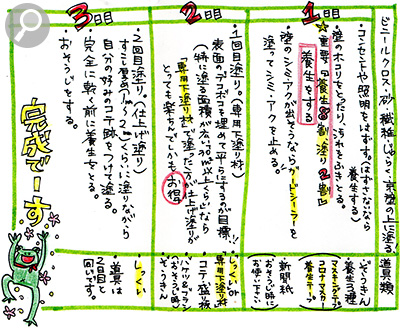 ビニールクロス・砂・繊維・じゅらく・京壁の上に塗る!
1日目
・コンセントや照明をはずす。(はずさないなら養生する)
・壁のホコリをとったり、汚れをふきとる。
☆重要『養生8割塗り2割』
養生をする
・壁のシミ・アクが出そうなら、ヤニ・アクドメシーラーを
塗ってシミ・アクを止める。
2日目
・1回目塗り。(専用下塗り材)
表面のデコボコを埋めて平らにするのが目標!!
(特に塗る面積が広い 以上くらい)なら
専用下塗り材で塗った方が仕上げ塗りが
とっても楽ちんでしかもお得
3日目
・2回目塗り。(仕上げ塗り)
すこし厚め(1〜2㎜)くらいに塗りながら
自分の好みのコテ跡をつけて塗る
・完全に乾く前に養生をとる。
・おそうじをする。
道具類
・ぞうきん
・養生3種
マスキングテープ
コロナマスカー
養生テープ
・新聞紙
(おそうじ時に
お使い下さい)
・しっくい or
専用下塗り材
・コテ・盛り板
・ハケ(&ブラシ
(おそうじ時)
・ぞうきん
・しっくい
・道具は
2日目と
同じです。
完成でーす